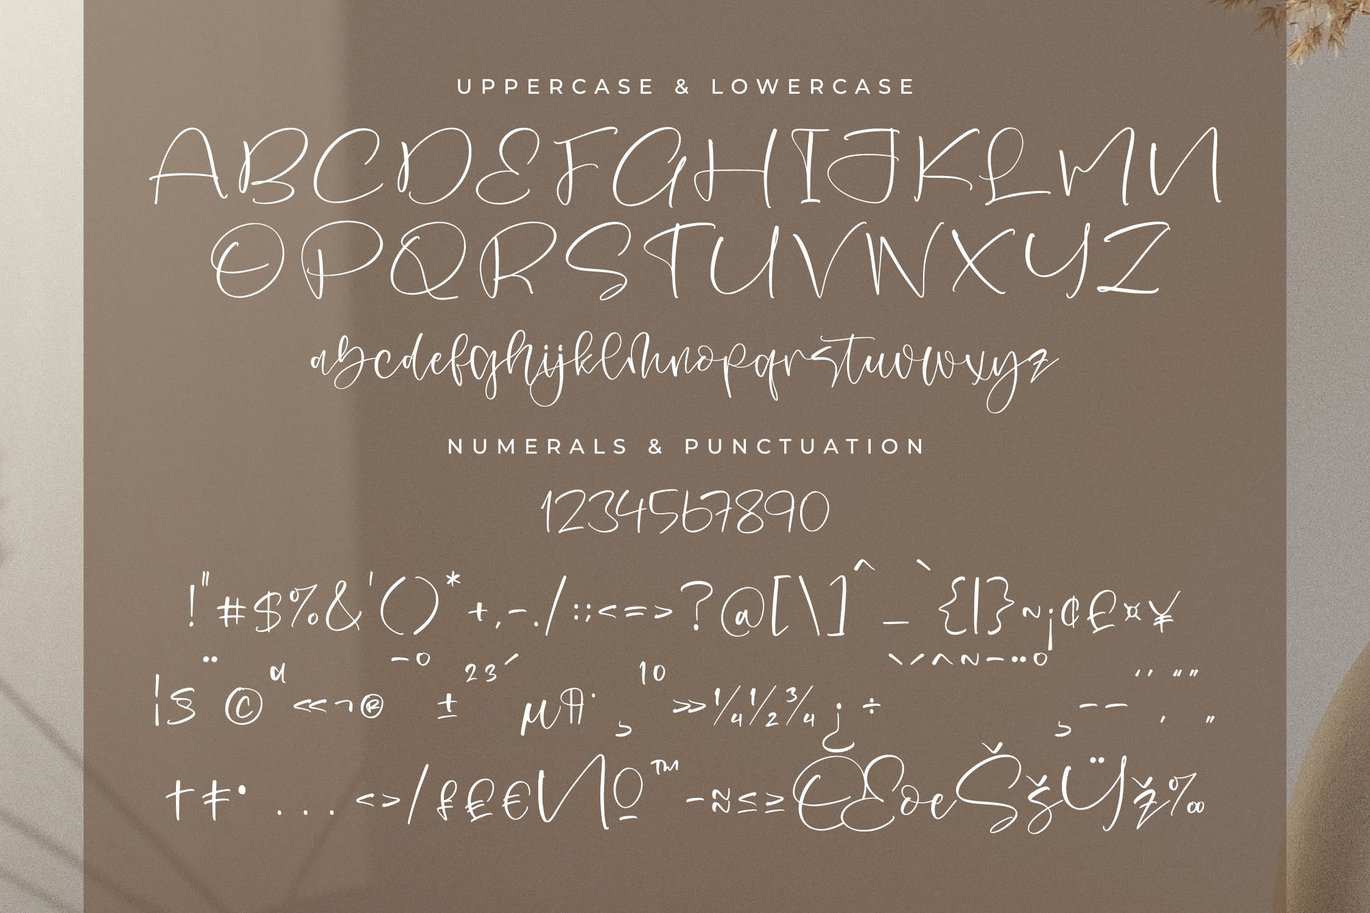 UPPERCASE & LOWERCASE
ABCDEFGHIJKLMN
OPQRSTUVNXYZ
abcdefghijklmnopqrstuvwxyz
NUMERALS & PUNCTUATION
1234567890
!"#$%&'()*+,-./:;<=>?@[\]^_`{|}~¡¢£¤¥
¦§¨©ª«¬®¯°±²³´µ¶·¸¹º»¼½¾¿÷
†‡•...‹›⁄₤€№™−≈≤≥ŒœŠšŸž‰